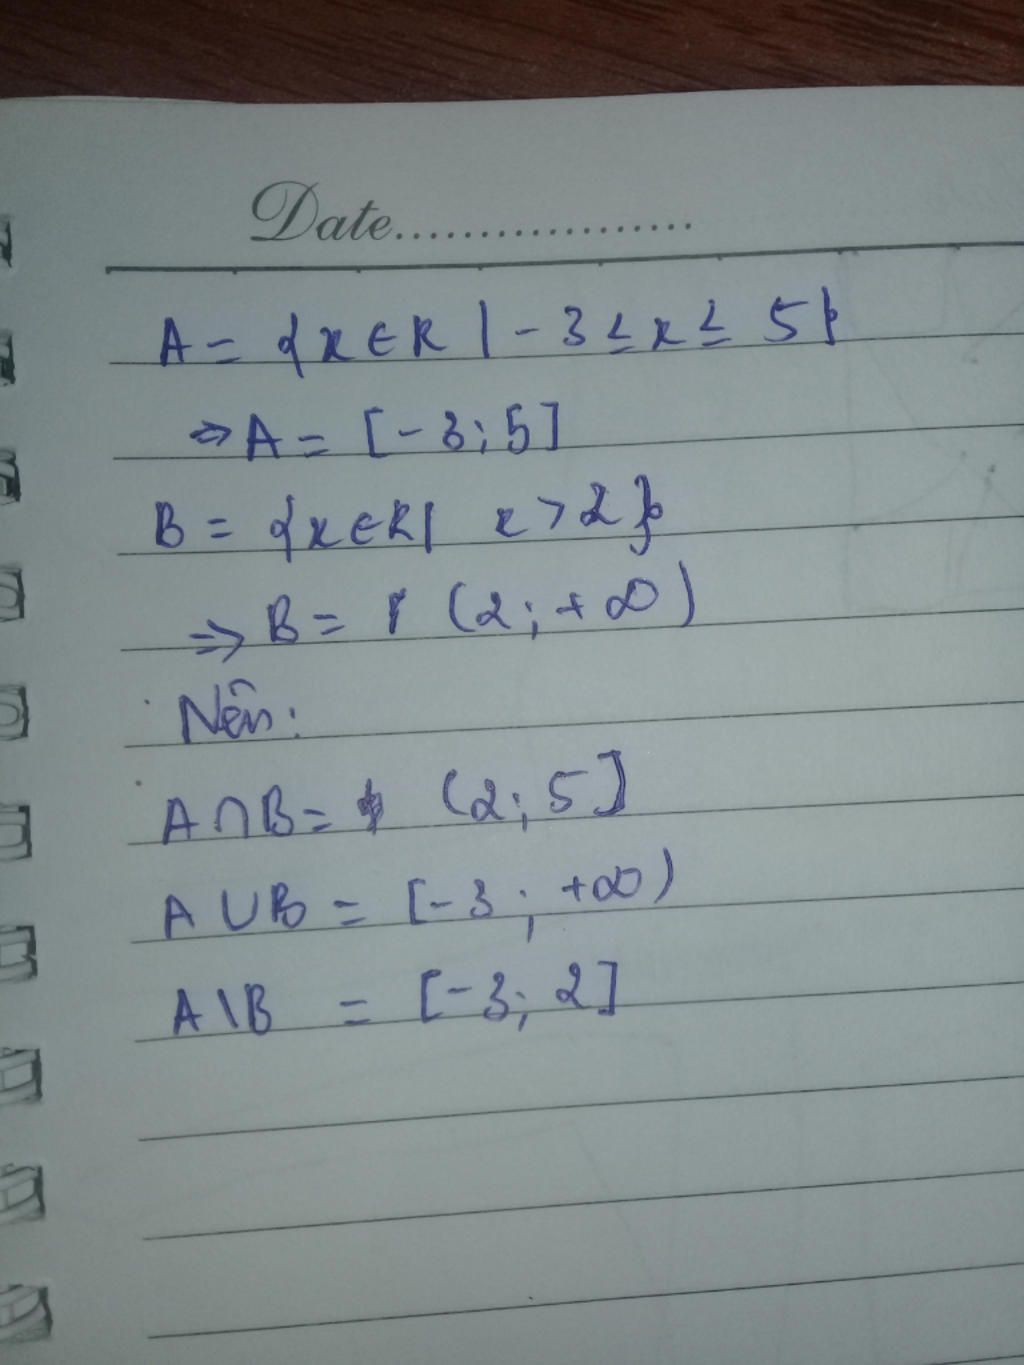 Date..................
A = {x ∈ R | - 3 ≤ x ≤ 5}
⇒ A = [- 3 ; 5]
B = {x ∈ R | x > 2}
⇒ B = (2 ; + ∞)
Nên :
A ∩ B = (2 ; 5]
A ∪ B = [- 3 ; +∞)
A \ B = [- 3 ; 2]